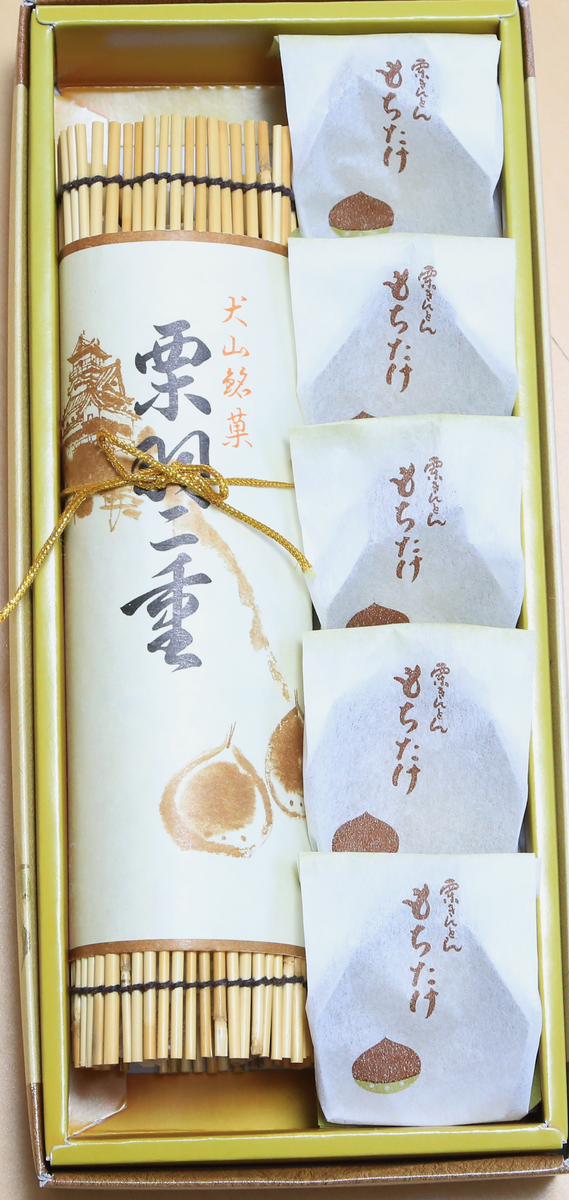 犬山銘菓
栗羽二重
栗きんとん
もちたけ
栗きんとん
もちたけ
栗きんとん
もちたけ
栗きんとん
もちたけ
栗きんとん
もちたけ